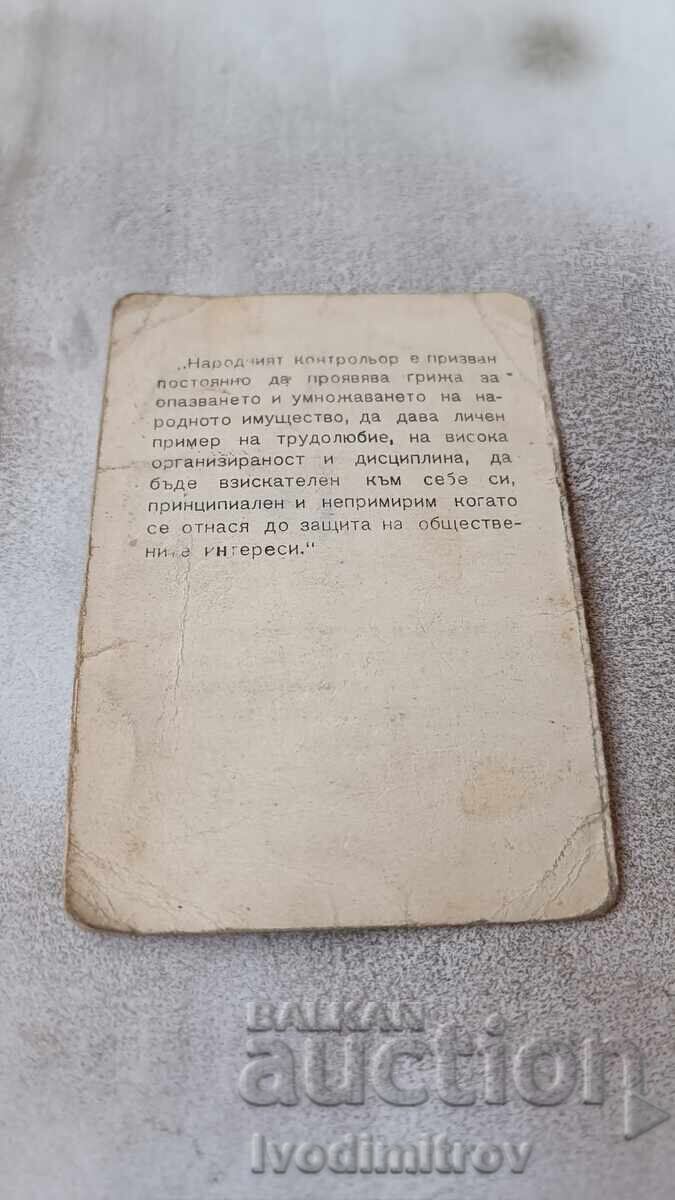 „Народният контрольор е призван
постоянно да проявява грижа за
опазването и умножаването на на-
родното имущество, да дава личен
пример на трудолюбие, на висока
организираност и дисциплина, да
бъде взискателен към себе си,
принципиален и непримирим когато
се отнася до защита на обществе-
ните интереси.“
BALKAN
auction
Ivodimitrov